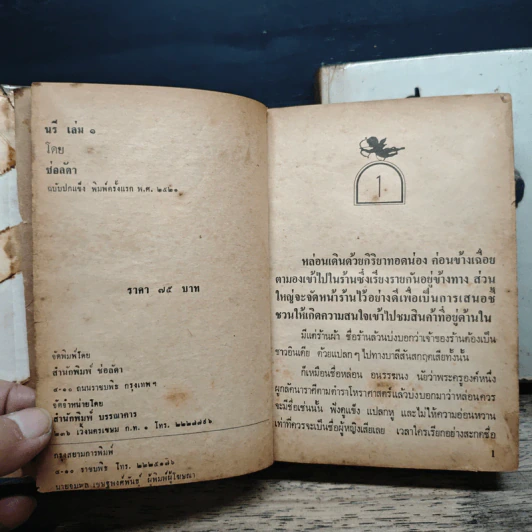 นรี เล่ม ๑
โดย
ช่อลัดา
ฉบับปกแข็ง พิมพ์ครั้งแรก พ.ศ. ๒๕๒๑
ราคา ๗๕ บาท
จัดพิมพ์โดย
สำนักพิมพ์ ช่อลัดา
๘-๑๐ ถนนราชบพิธ กรุงเทพฯ
จัดจำหน่ายโดย
สำนักพิมพ์ บรรณาคาร
เวิ้งนครเขษม ก.ท. ๑ โทร.
กรุงสยามการพิมพ์
๘-๑๐ ราชบพิธ โทร.
ผู้พิมพ์ผู้โฆษณา
1
หล่อนเดินด้วยกิริยาทอดน่อง ค่อนข้างเฉื่อย
ตามองเข้าไปในร้านซึ่งเรียงรายกันอยู่ข้างทาง ส่วน
ใหญ่จะจัดหน้าร้านไว้อย่างดีเพื่อเป็นการเสนอชี้
ชวนให้เกิดความสนใจเข้าไปชมสินค้าที่อยู่ด้านใน
มีแต่ร้านผ้า ชื่อร้านล้วนบ่งบอกว่าเจ้าของร้านต้องเป็น
ชาวอินเดีย ด้วยแปลกๆ ไปทางบาลีสันสกฤตเสียทั้งนั้น
ก็เหมือนชื่อหล่อน อนรรฆนง นัยว่าพระครูองค์หนึ่ง
ผูกลัคนาราศีตามตำราโหราศาสตร์แล้วบ่งบอกมาว่าหล่อนควร
จะมีชื่อเช่นนั้น ฟังดูแข็ง แปลกหู และไม่ให้ความอ่อนหวาน
เท่าที่ควรจะเป็นชื่อผู้หญิงเสียเลย เวลาใครเรียกอย่างสะกดชื่อ
1